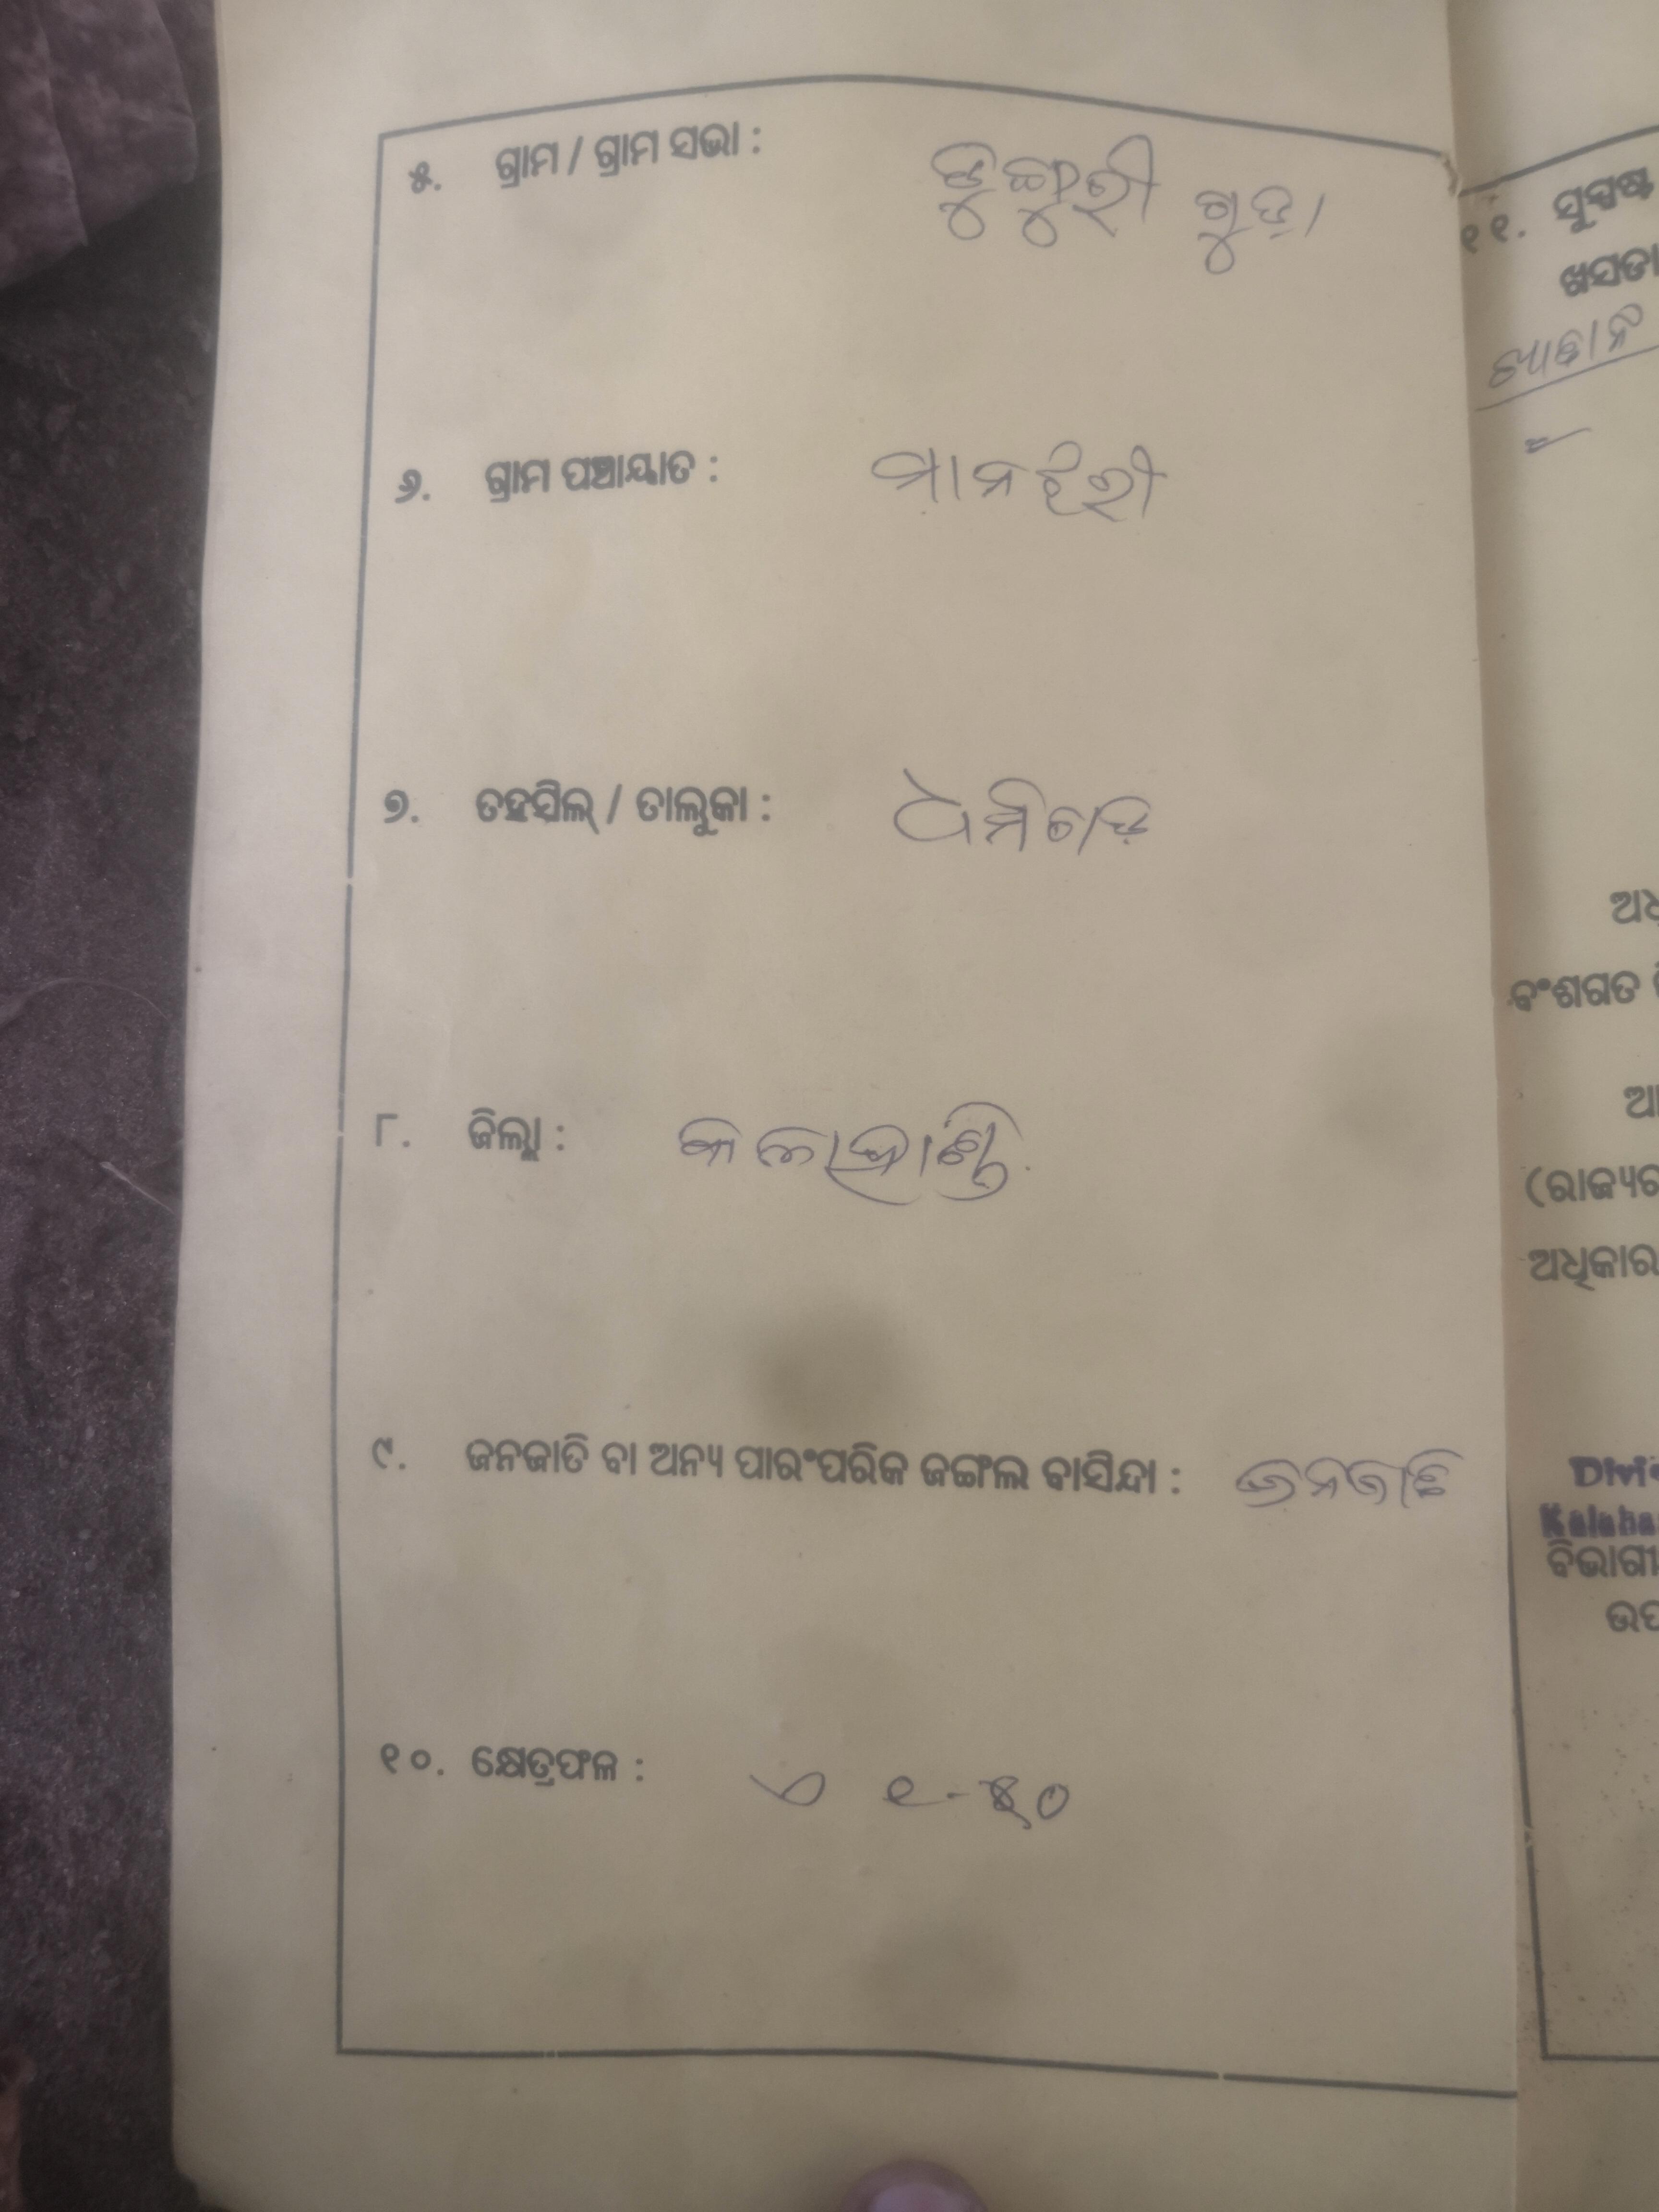 ୫. ଗ୍ରାମ / ଗ୍ରାମ ସଭା : ଡୁମୁରୀ ଗୁଡ଼ା
୬. ଗ୍ରାମ ପଞ୍ଚାୟାତ :
୭. ତହସିଲ୍ / ତାଲୁକା : ଧର୍ମଗଡ଼
୮. ଜିଲ୍ଲା : କଳାହାଣ୍ଡି
୯. ଜନଜାତି ବା ଅନ୍ୟ ପାରଂପରିକ ଜଙ୍ଗଲ ବାସିନ୍ଦା : ଜନଜାତି
୧୦. କ୍ଷେତ୍ରଫଳ : ଏ ୧-୫୦
୧୧. ସୁସ୍ପଷ୍ଟ
ଖସଡା
ବଂଶଗତ
(ରାଜ୍ୟର
ଅଧିକାର
Divi
Kalaha
ବିଭାଗୀ